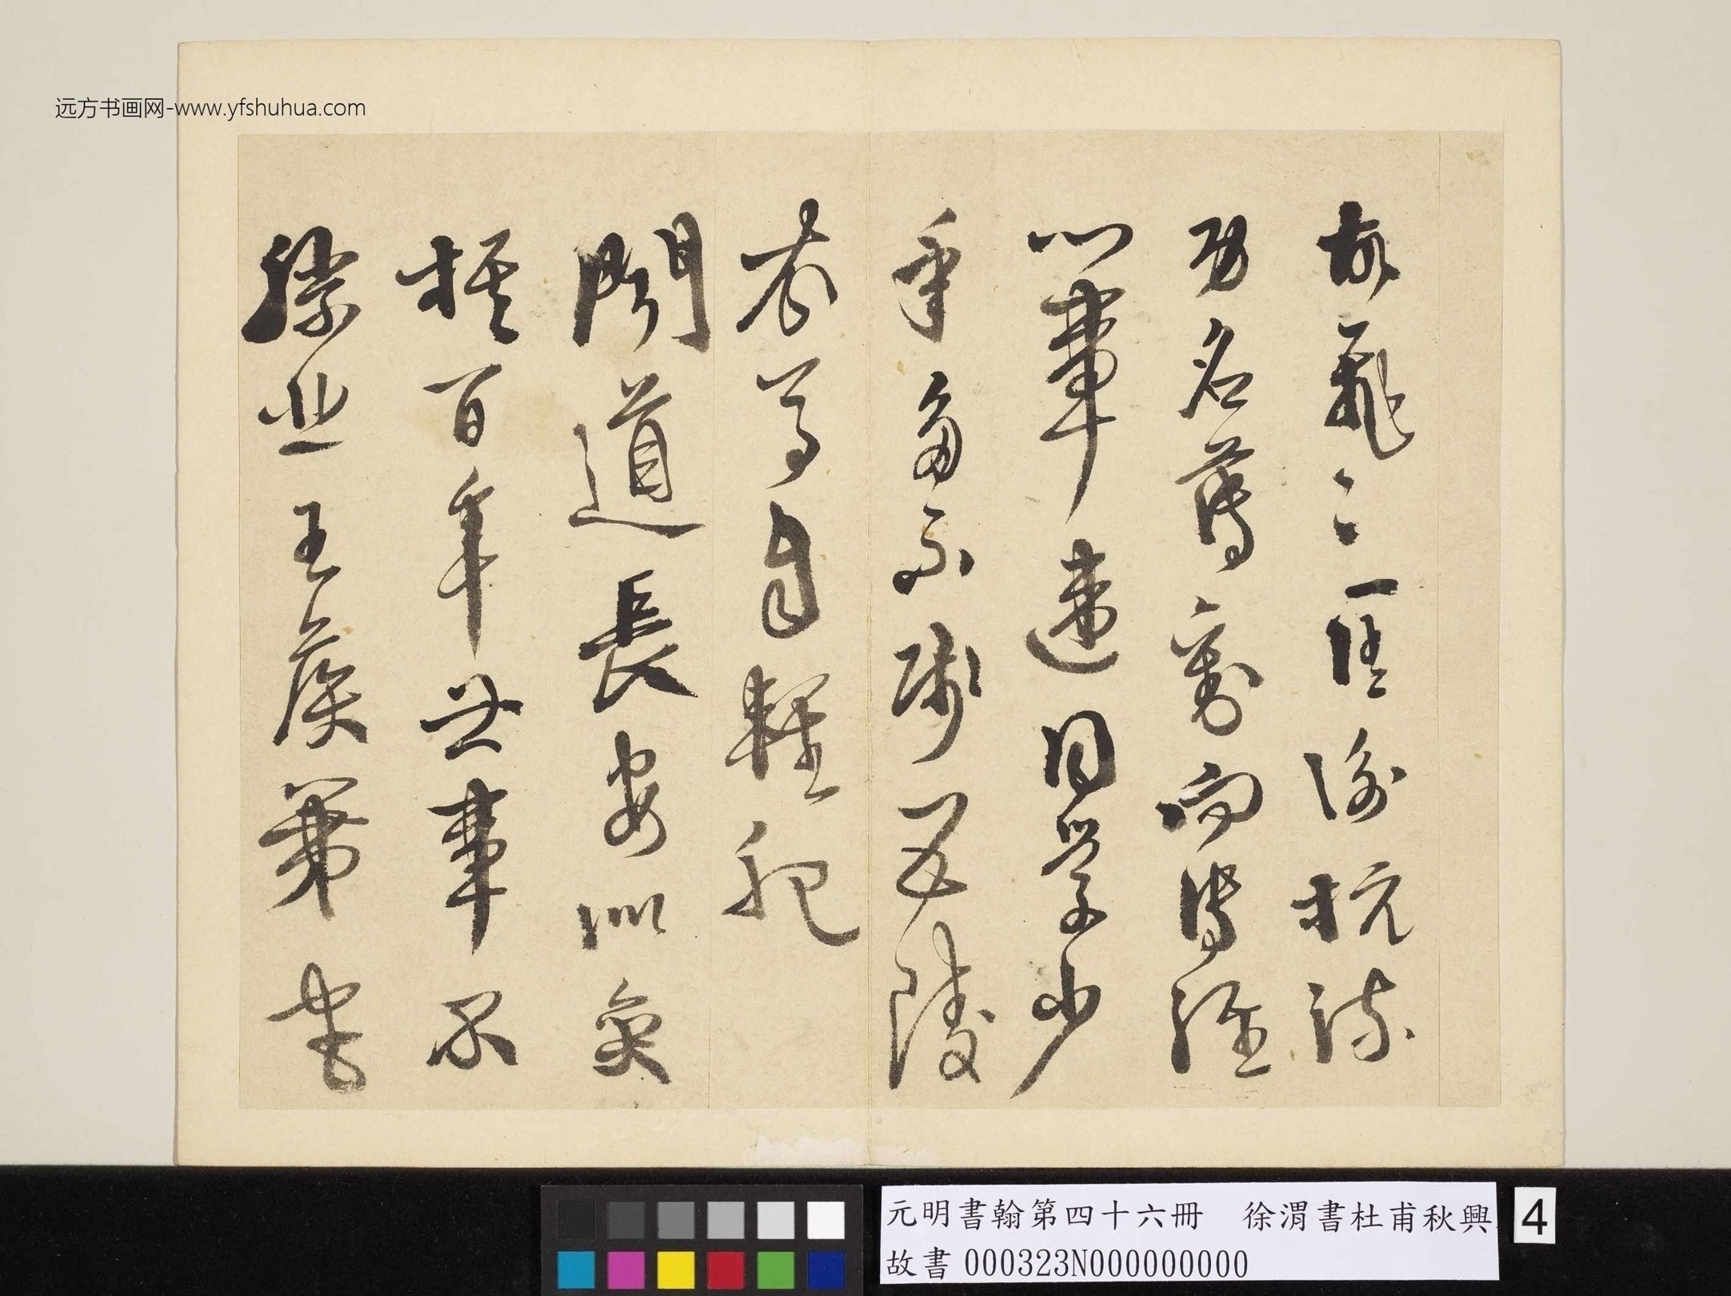 远方书画网-www.yfshuhua.com
故飛〻匡衡抗疏
功名薄劉向傳經
心事違同學少
年多不賤五陵
衣馬自輕肥
聞道長安似奕
棋百年世事不
勝悲王侯第宅
元明書翰第四十六冊 徐渭書杜甫秋興
故書 000323N000000000
4